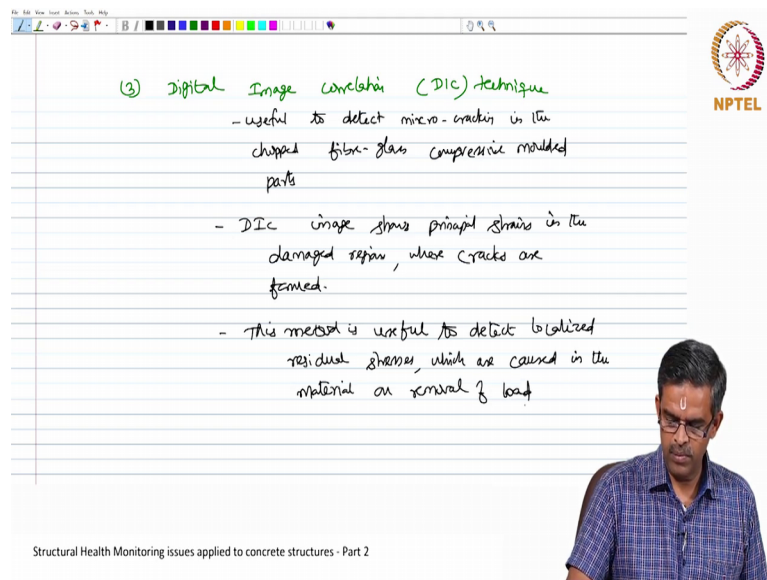 File Edit View Insert Actions Tools Help
B I
NPTEL
(3) Digital Image Correlation (DIC) technique
- useful to detect micro-cracking in the
chopped fibre-glass compressive moulded
parts
- DIC image shows principal strains in the
damaged region, where cracks are
formed.
- This method is useful to detect localized
residual stresses, which are caused in the
material on removal of load
Structural Health Monitoring issues applied to concrete structures - Part 2